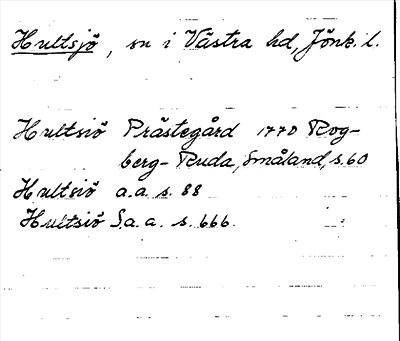 Hultsjö, sn i Västra hd, Jönk. l.
Hultsiö Prästegård 1770 Rog-
berg-Ruda, Småland, s. 60
Hultsiö a.a. s. 88
Hultsiö S. a. a. s. 666.